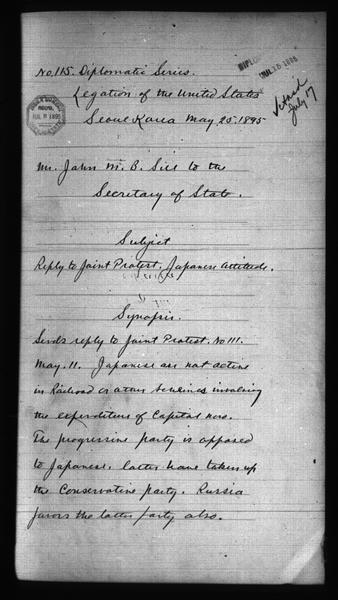 No. 115. Diplomatic Series.
JUL 15 1895
Legation of the United States
Seoul Korea May 25. 1895
July 17
Mr. John M. B. Sill to the
Secretary of State.
Subject
Reply to Joint Protest. Japanese attitude.
Synopsis.
Sends reply to Joint Protest. No 111.
May. 11. Japanese are not active
in Railroad or other involving
the expenditure of Capital now.
The progressive party is opposed
to Japanese. latter have taken up
the Conservative party. Russia
favors the latter party also.